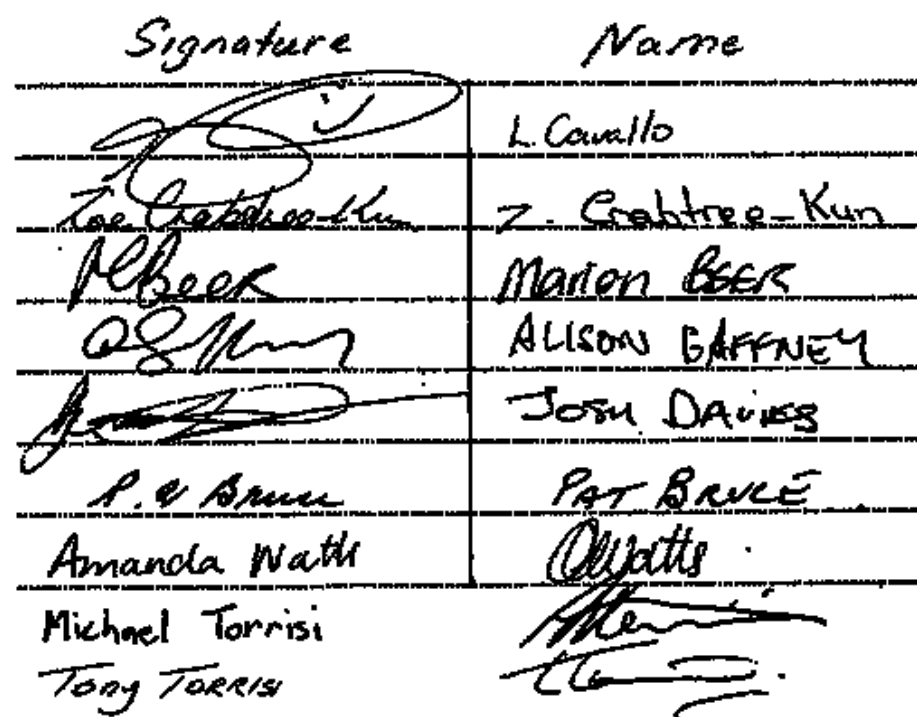 Signature Name
L. Cavallo
Zoe Crabtree-Kun Z. Crabtree-Kun
MBeer Marion BEER
ALISON GAFFNEY
JOSH DAVIES
P. Bruce PAT BRUCE
Amanda Watts AWatts
Michael Torrisi
Tony TORRISI